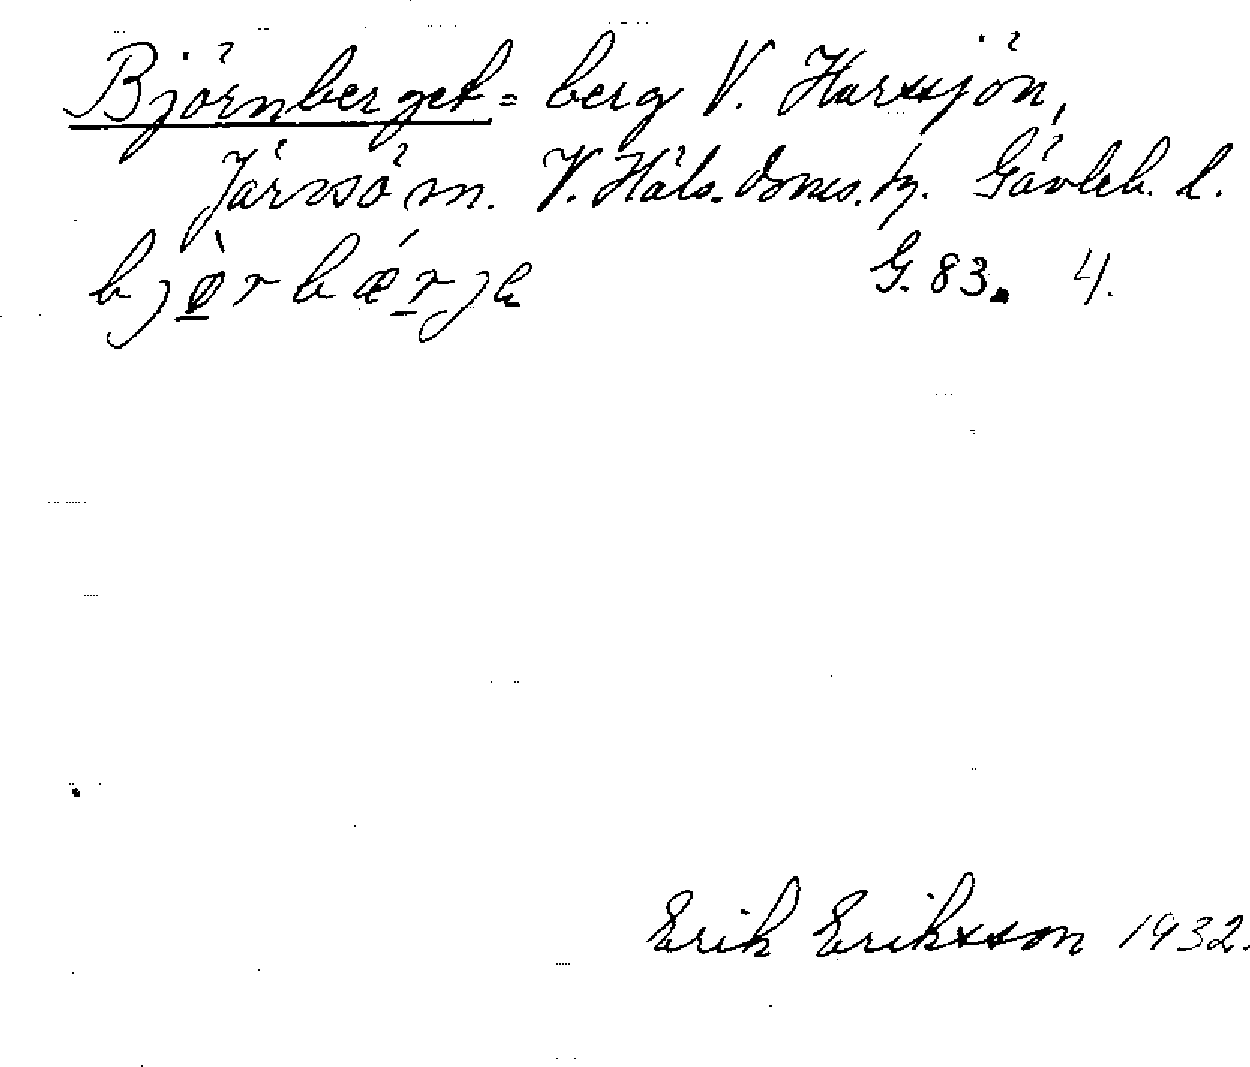 Björnberget = berg V. Harssjön,
Järvsö sn. V. Häls. doms. hz. Gävleb. l.
bjø̀rbǽrje G. 83. 4.
Erik Eriksson 1932.